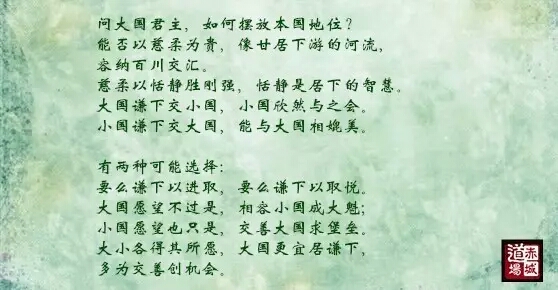 问大国君主，如何摆放本国地位？
能否以慈柔为贵，像甘居下游的河流，
容纳百川交汇。
慈柔以恬静胜刚强，恬静是居下的智慧。
大国谦下交小国，小国欣然与之会。
小国谦下交大国，能与大国相媲美。
有两种可能选择：
要么谦下以进取，要么谦下以取悦。
大国愿望不过是，相容小国成大魁；
小国愿望也只是，交善大国求堡垒。
大小各得其所愿，大国更宜居谦下，
多为交善创机会。
赤城
道場